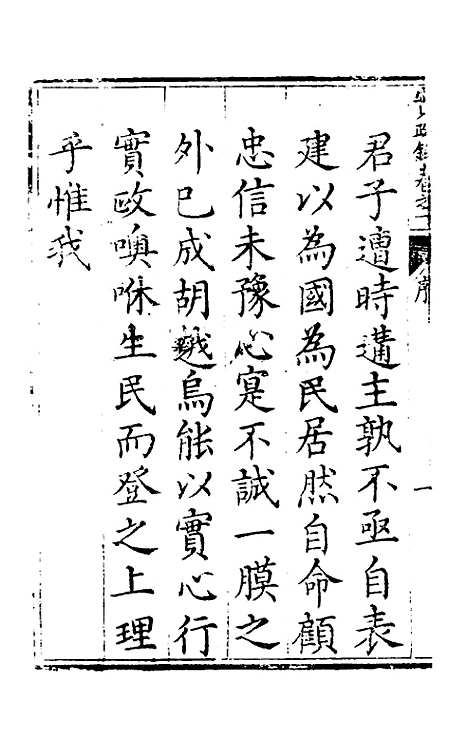 君子遭時遘主孰不亟自表
建以為國為民居然自命顧
忠信未豫心寔不誠一膜之
外已成胡越烏能以實心行
實政噢咻生民而登之上理
乎惟我
政錄卷之一
序
一